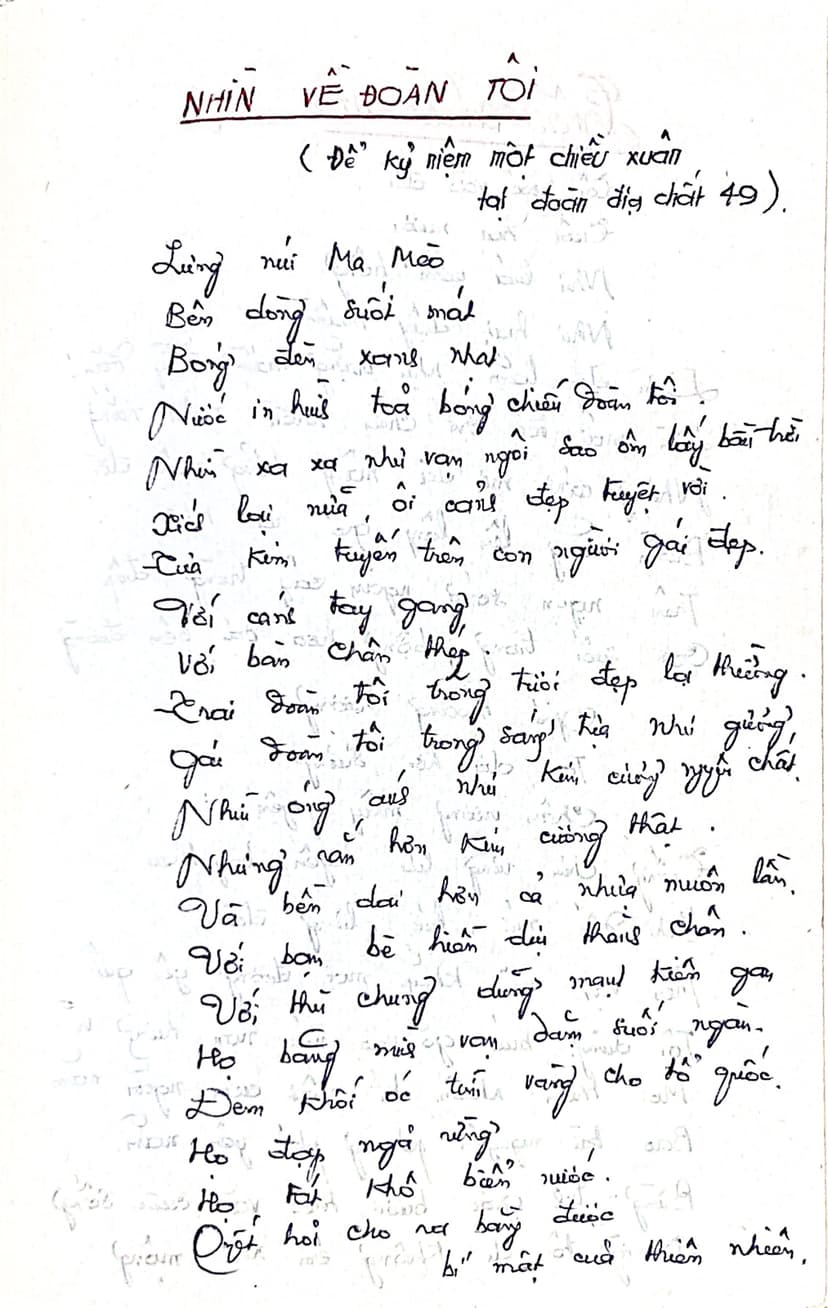 NHÌN VỀ ĐOÀN TÔI
(Để kỷ niệm một chiều xuân
tại đoàn địa chất 49).
Lưng núi Ma Mèo
Bên dòng suối mát
Bóng đèn xanh nhạt
Nước in hình toả bóng chiếu đoàn tôi.
Nhìn xa xa như vạn ngôi sao ôm lấy bầu trời
Xích lại nữa, ôi cảnh đẹp tuyệt vời.
Của kim tuyến trên con người gái đẹp.
Với cánh tay gang
Với bàn chân thép.
Trai đoàn tôi trông tươi đẹp lạ thường.
Gái đoàn tôi trong sáng tựa như gương,
Như óng ánh như kim cương nguyên chất.
Nhưng rắn hơn kim cương thật.
Và bền dai hơn cả nhựa muôn lần.
Với bạn bè hiền dịu thành chân.
Với thù chung dũng mạnh kiên gan
Họ băng mình vạn dặm suối ngàn.
Đem khối óc tìm vàng cho tổ quốc.
Họ đạp ngả rừng
Họ tát khô biển nước.
Quyết hỏi cho ra bằng được
bí mật của thiên nhiên.